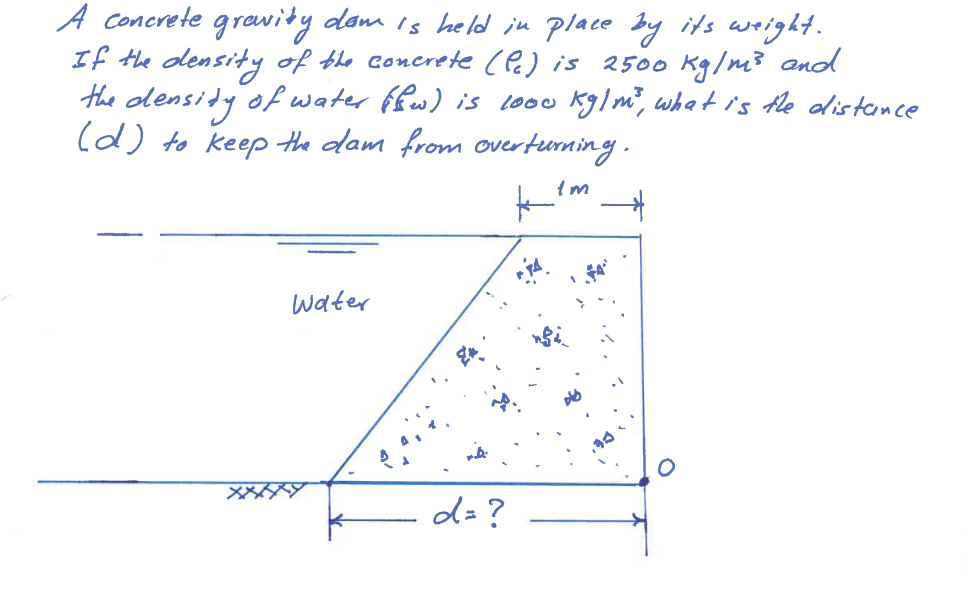 A concrete gravity dam is held in place by its weight.
If the density of the concrete (ρc) is 2500 Kg/m³ and
the density of water (ρw) is 1000 Kg/m³, what is the distance
(d) to keep the dam from overturning.
1m
Water
O
d=?